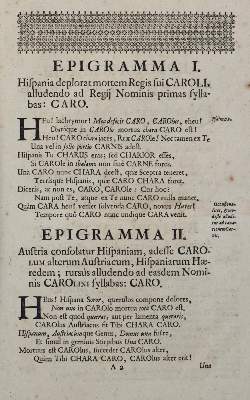 EPIGRAMMA I.
Hispania deplorat mortem Regis sui CAROLI,
alludendo ad Regij Nominis primas sylla-
bas: CARO.
HEu! lachrymor! Me deficit CARO, CAROlus, eheu!
CAROLO mortua chara CARO est!
Heu! CARO chara jaces, Rex CAROle! Nec tamen ex Te
Una vel in solo portio CARNIS adest.
Hispanis Tu CHARUS eras; sed CHARIOR esses,
Si CAROle in thalamo non sine CARNE fores.
Una CARO nunc CHARA deest, quæ sceptra teneret,
Terrásque Hispanis, quæ CARO CHARA foret.
Diceris, ac non es, CARO, CAROle: Cor hoc?
Nam post Te, atque ex Te nunc CARO nulla manet.
Quàm CARA heu! veniet solvenda CARO, novus Hæres!
Tempore quô CARO nunc undique CARA venit.
EPIGRAMMA II.
Austria consolatur Hispaniam, adesse CARO-
LUM alterum Austriacum, Hispaniarum Hæ-
redem; rursus alludendo ad easdem Nomi-
nis CAROLINI syllabas: CARO.
HEus! Hispana Soror, querulos compone dolores,
Non una in CAROlo mortua tota CARO est,
Non est quod quereris, aut per lamenta
CAROlus Austriacus sit Tibi CHARA CARO.
Hispanum, Austriacúmque Genus, Domus una fuere,
Et simul in geminis Stirpibus Una CARO.
Mortuus est CAROlus, succedet CAROlus alter,
Quàm Tibi CHARA CARO, CAROlus alter erit!
A 2 Una